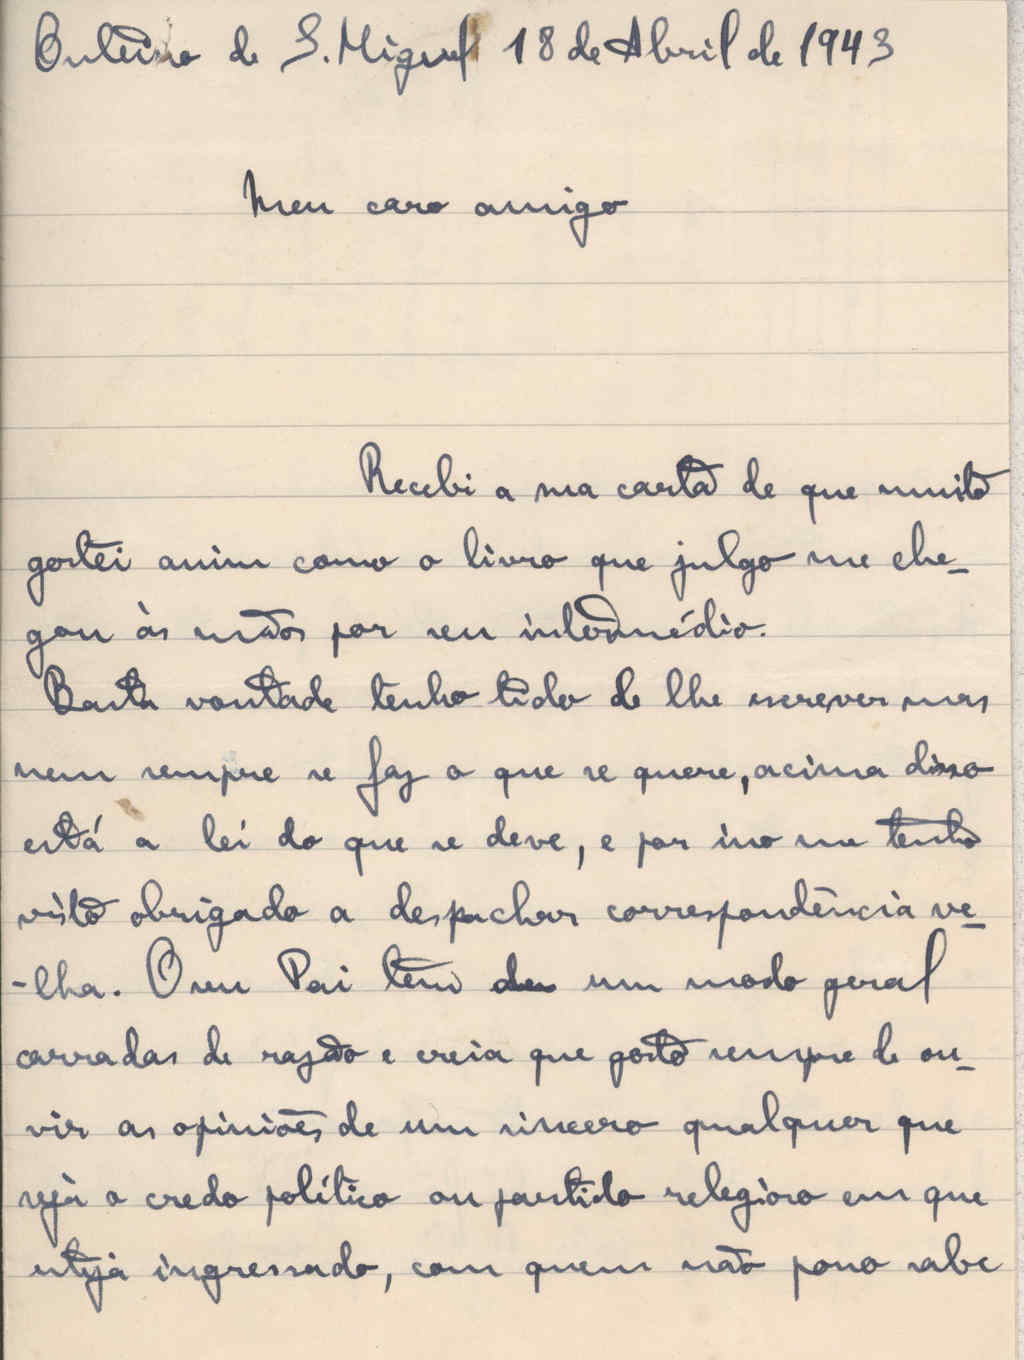 Outeiro de S. Miguel 18 de Abril de 1943
Meu caro amigo
Recebi a sua carta de que muito
gostei assim como o livro que julgo me che-
gou às mãos por seu intermédio.
Basta vontade tenho tido de lhe escrever mas
nem sempre se faz o que se quere, acima disso
está a lei do que se deve, e por isso me tenho
visto obrigado a despachar correspondência ve-
-lha. O seu Pai tem de um modo geral
carradas de razão e creia que gosto sempre de ou-
vir as opiniões de um sincero qualquer que
seja o credo político ou partido relegioso em que
esteja ingressado, com quem não posso sabe